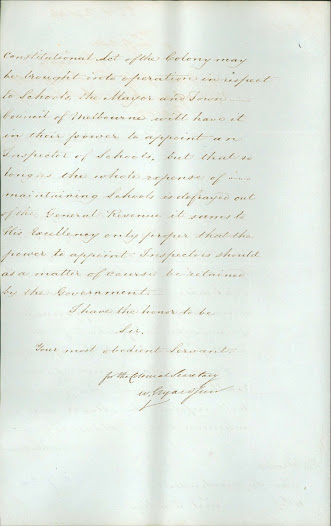 Constitutional Act of the Colony may
be brought into operation in respect
to Schools, the Mayor and Town
Council of Melbourne will have it
in their power to appoint an
Inspector of Schools, but that so
long as the whole expense of
maintaining Schools is defrayed out
of the General Revenue it seems to
His Excellency only proper that the
power to appoint Inspectors should
as a matter of course be retained
by the Government.
I have the honor to be
Sir,
Your most obedient Servant.
for the Colonial Secretary
W. Elyard Junr